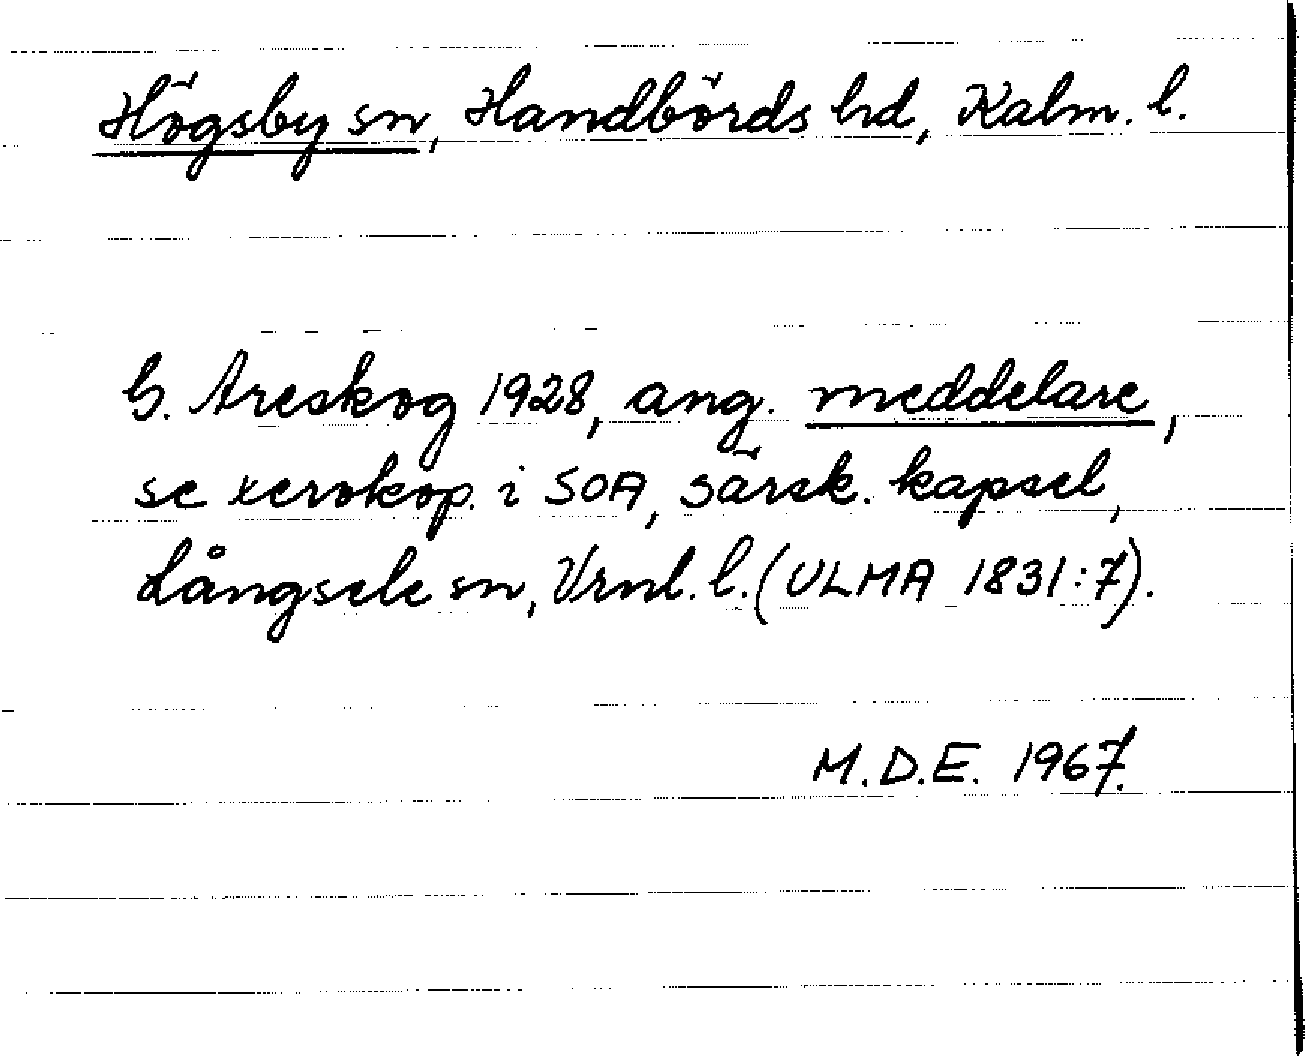 Högsby sn, Handbörds hd, Kalm. l.
G. Areskog 1928, ang. meddelare,
se xerokop. i SOA, särsk. kapsel,
Långsele sn, Vrnl. l. (ULMA 1831:7).
M.D.E. 1967.